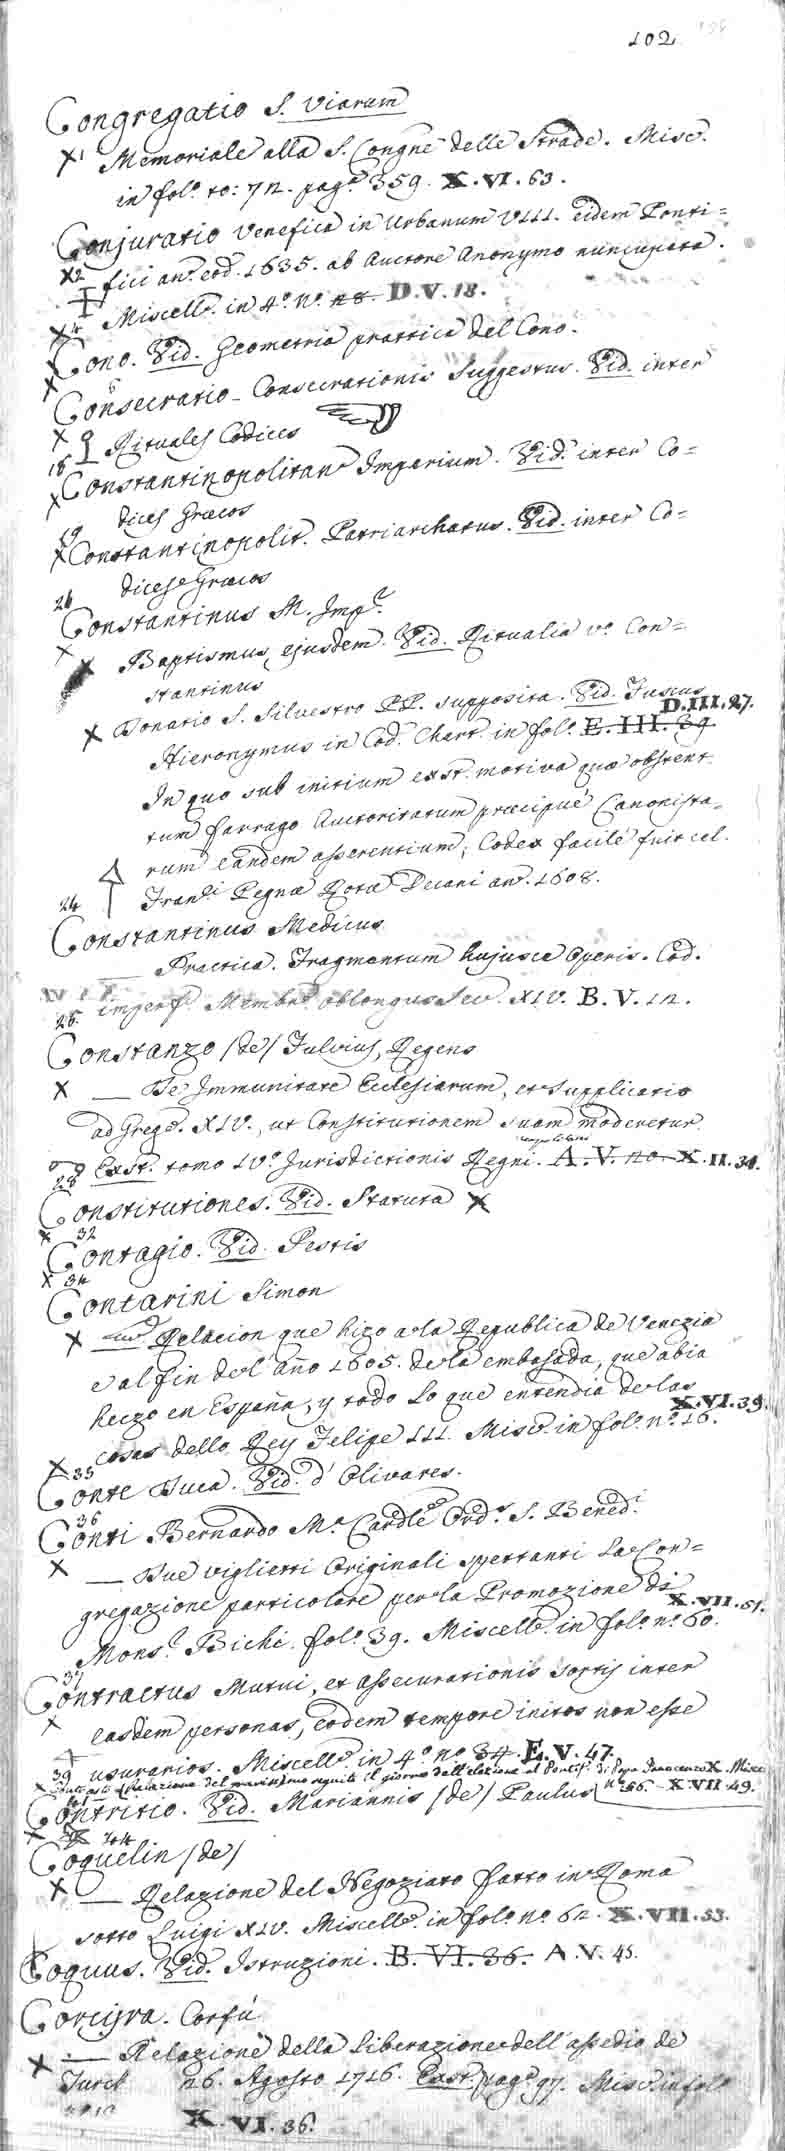 102
Congregatio S. Viarum
X 1 Memoriale alla S. Congne delle Strade. Misc.
in fol.º to: 72. pag.e 359. X.VI.63.
Conjuratio Venefica in Urbanum VIII. eidem Ponti=
X2 fici an.º eod. 1635. ab Auctore Anonymo nuncupata.
Miscell. in 4.º n.º 28. D.V.18.
X 4
Cono. Vid. Geometria prattica del Cono.
X 6
Consecratio - Consecrationis Suggestus. Vid. inter
X 9 Rituales Codices
18
Constantinopolitan. Imperium. Vid. inter Co=
X dices Græcos
19
X Constantinopolit. Patriarchatus. Vid. inter Co=
dices Græcos
Constantinus M. Imp.r
X X Baptismus ejusdem. Vid. Ritualia v.º Con=
stantinus
X Donatio S. Silvestro PP. supposita. Vid. Fuscus
D.III.27.
Hieronymus in Cod. Chart. in fol.º E.III.39
In quo sub initium exst. motiva quæ obstent.
tum farrago Auctoritatum præcipuè Canonista=
rum eandem asserentium, Codex facilè fuit cel.
Fran.ci Pegnæ Rotæ Decani an.º 1608.
24
Constantinus Medicus
Practica. Fragmentum hujusce Operis. Cod.
imperf. Membr. oblongus Sec. XIV. B.V.12.
Constanzo (de) Fulvius, Regens
X — De Immunitate Ecclesiarum, et Supplicatio
ad Greg. XIV., ut Constitutionem suam moderetur
Exst. tomo IV.º Jurisdictionis Regni. A.V.20. X.II.34.
28
Constitutiones. Vid. Statuta X
X 32
Contagio. Vid. Pestis
X 34
Contarini Simon
X — Relacion que hizo a la Republica de Venezia
e al fin del año 1605. de la embasada, que abia
heczo en España, y todo lo que entendia de las
X.VI.39.
cosas dello Rey Felipe III. Misc. in fol.º n.º 16.
X 35
Conte Duca. Vid. d'Olivares.
36
Conti Bernardo M.a Cardle Ord.s S. Bened.i
X — Due viglietti Originali spettanti la Con=
gregazione particolare per la Promozione di
X.VII.51.
Mons.r Bichi. fol.º 39. Miscell. in fol.º n.º 60.
37
Contractus Mutui, et assecurationis sortis inter
X easdem personas, eodem tempore initos non esse
usurarios. Miscell. in 4.º n.º 34. E.V.47.
X 39 Relazione del seguito il giorno dell'elezione al Pontif. di Papa Innocenzo X. Misc.
n.º 56. X.VII.49.
Contritio. Vid. Mariannis (de) Paulus
X 44
Coquelin (de)
X — Relazione del Negoziato fatto in Roma
sotto Luigi XIV. Miscell. in fol.º n.º 62. X.VII.53.
Coquus. Vid. Istruzioni. B.VI.36. A.V.45.
Corcyra. Corfù
X — Relazione della Liberazione dell'assedio de
Turch 26. Agosto 1716. Exst. pag.e 97. Misc. in fol.
X.VI.36.